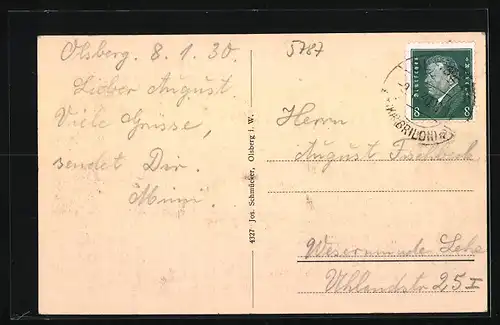 Olsberg. 8.1.30.
Lieber August.
Viele Grüsse,
sendet Dir.
"Mimi".
4327 Jos. Schmücker, Olsberg i. W.
5787
Deutsches Reich
8 8
(KR. BRILON) a
Herrn
August
Wesermünde Lehe
Uhlandstr 25 I